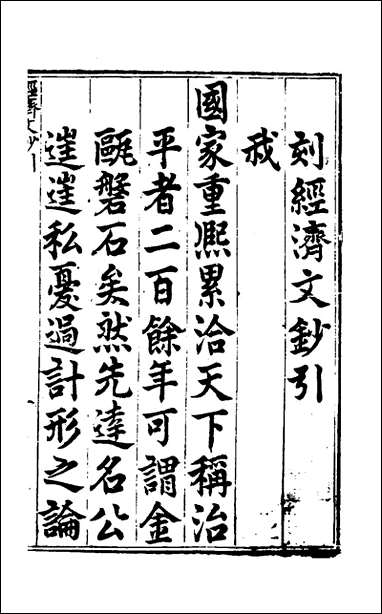 刻經濟文鈔引
我
國家重熙累洽天下稱治
平者二百餘年可謂金
甌磐石矣然先達名公
䢔䢔私憂過計形之論
經濟文鈔引